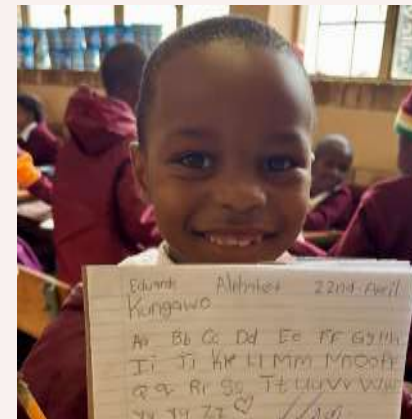 Eduardo Alphabet 22nd April
Kungawo
Aa Bb Cc Dd Ee Ff Gg Hh
Ii Jj Kk Ll Mm Nn Oo Pp
Qq Rr Ss Tt Uu Vv Ww
Yy Zz